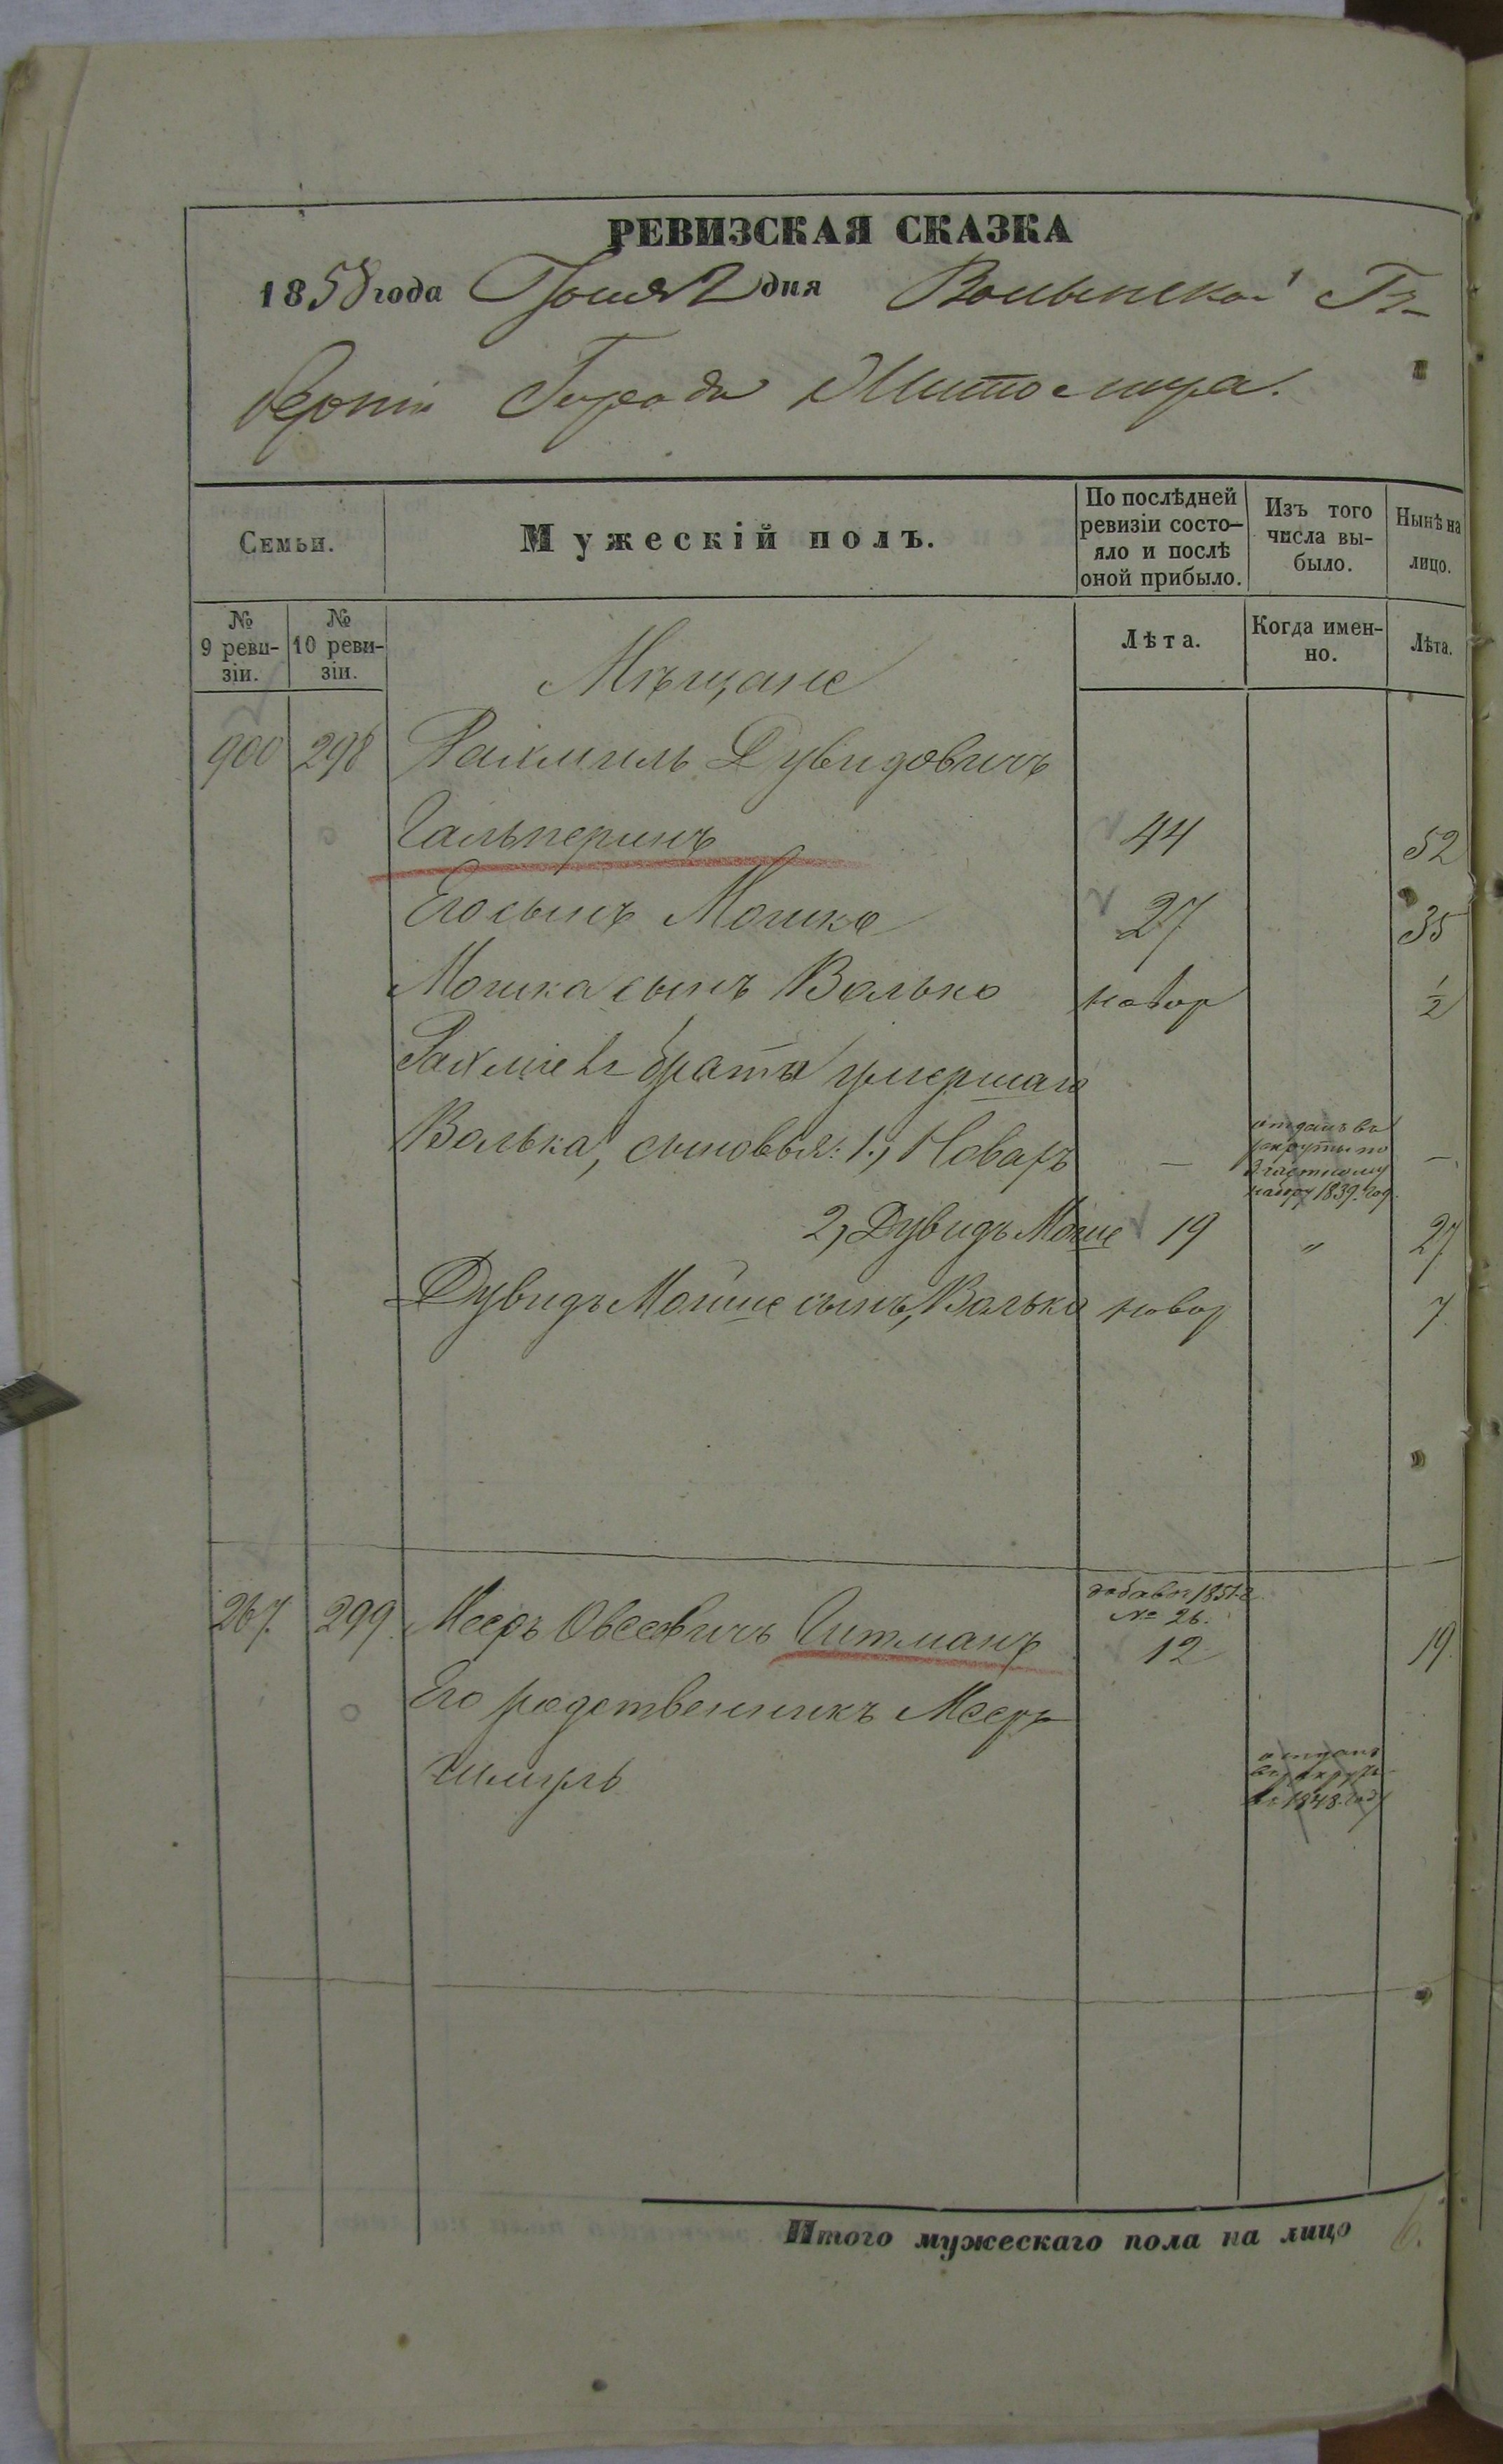 РЕВИЗСКАЯ СКАЗКА
1858 года Іюня 2 дня Волынской Гу-
берніи Города Житомира.
Семьи.
Мужескій полъ.
По послѣдней ревизіи состо-яло и послѣ оной прибыло.
Изъ того числа вы-было.
Нынѣ на лицо.
№ 9 реви-зіи.
№ 10 реви-зіи.
Лѣта.
Когда имен-но.
Лѣта.
Мѣщане
900 298 Рахмиль Дувидовичъ
Гальперинъ 44 52
Его сынъ Мошко 27 35
Мошка сынъ Волько новор ½
Рахмиеля брата умершаго
Волька, сыновья: 1., — отданъ въ рекруты по 1839. год. —
2, Дувидъ Мойше 19 " 27
Дувидъ Мойше сынъ, Волько новор 7
267. 299. Мееръ Овсеевичъ Гитманъ добавоч 1851 г № 26. 12 19.
Его родственникъ Мееръ
Шмуль отданъ въ рекруты въ 1848. году
Итого мужескаго пола на лицо 6.